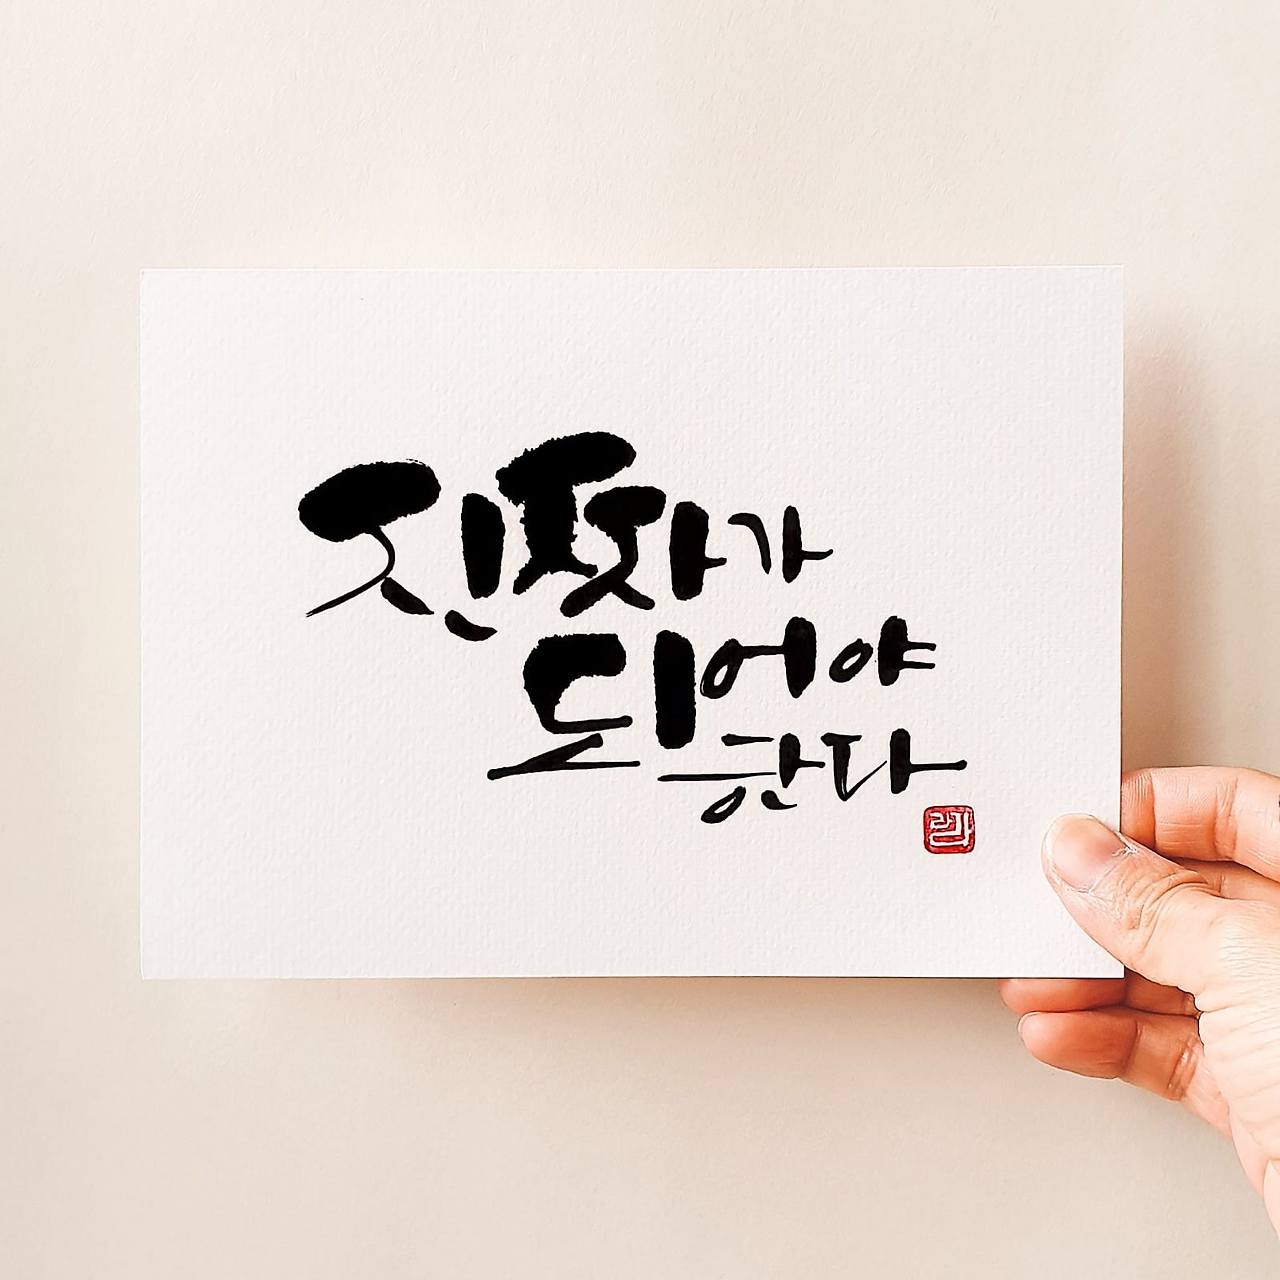 진짜가
되어야
한다